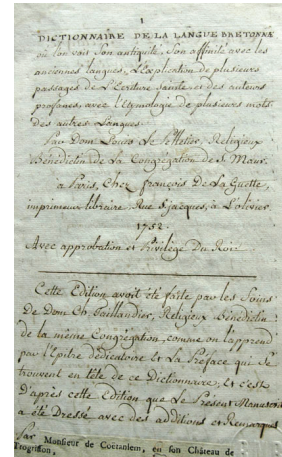 1
DICTIONNAIRE DE LA LANGUE BRETONNE
où l'on voit son antiquité, son affinité avec les
anciennes langues, L'explication de plusieurs
passages de L'Ecriture Sainte, et des auteurs
profanes, avec l'Etymologie de plusieurs mots
des autres Langues.
Par Dom Louis Le Pelletier, Religieux
Bénédictin de La Congrégation de S. Maur.
à Paris, Chez françois De La Guette,
imprimeur libraire, Rue S. jacques, à L'olivier.
1752.
Avec approbation et Privilège Du Roi.
Cette Edition avoit été faite par les Soins
de Dom Ch. Taillandier, Religieux Bénédictin
de la même Congrégation, comme on l'apprend
par l'Epitre dédicatoire et La Préface qui Se
trouvent en tête de ce Dictionnaire, et c'est
D'après cette Edition que Le Présent Manuscrit
a été Dressé avec des additions et Remarques
Par Monsieur de Coëtanlem, en son Château de
Trogriffon,